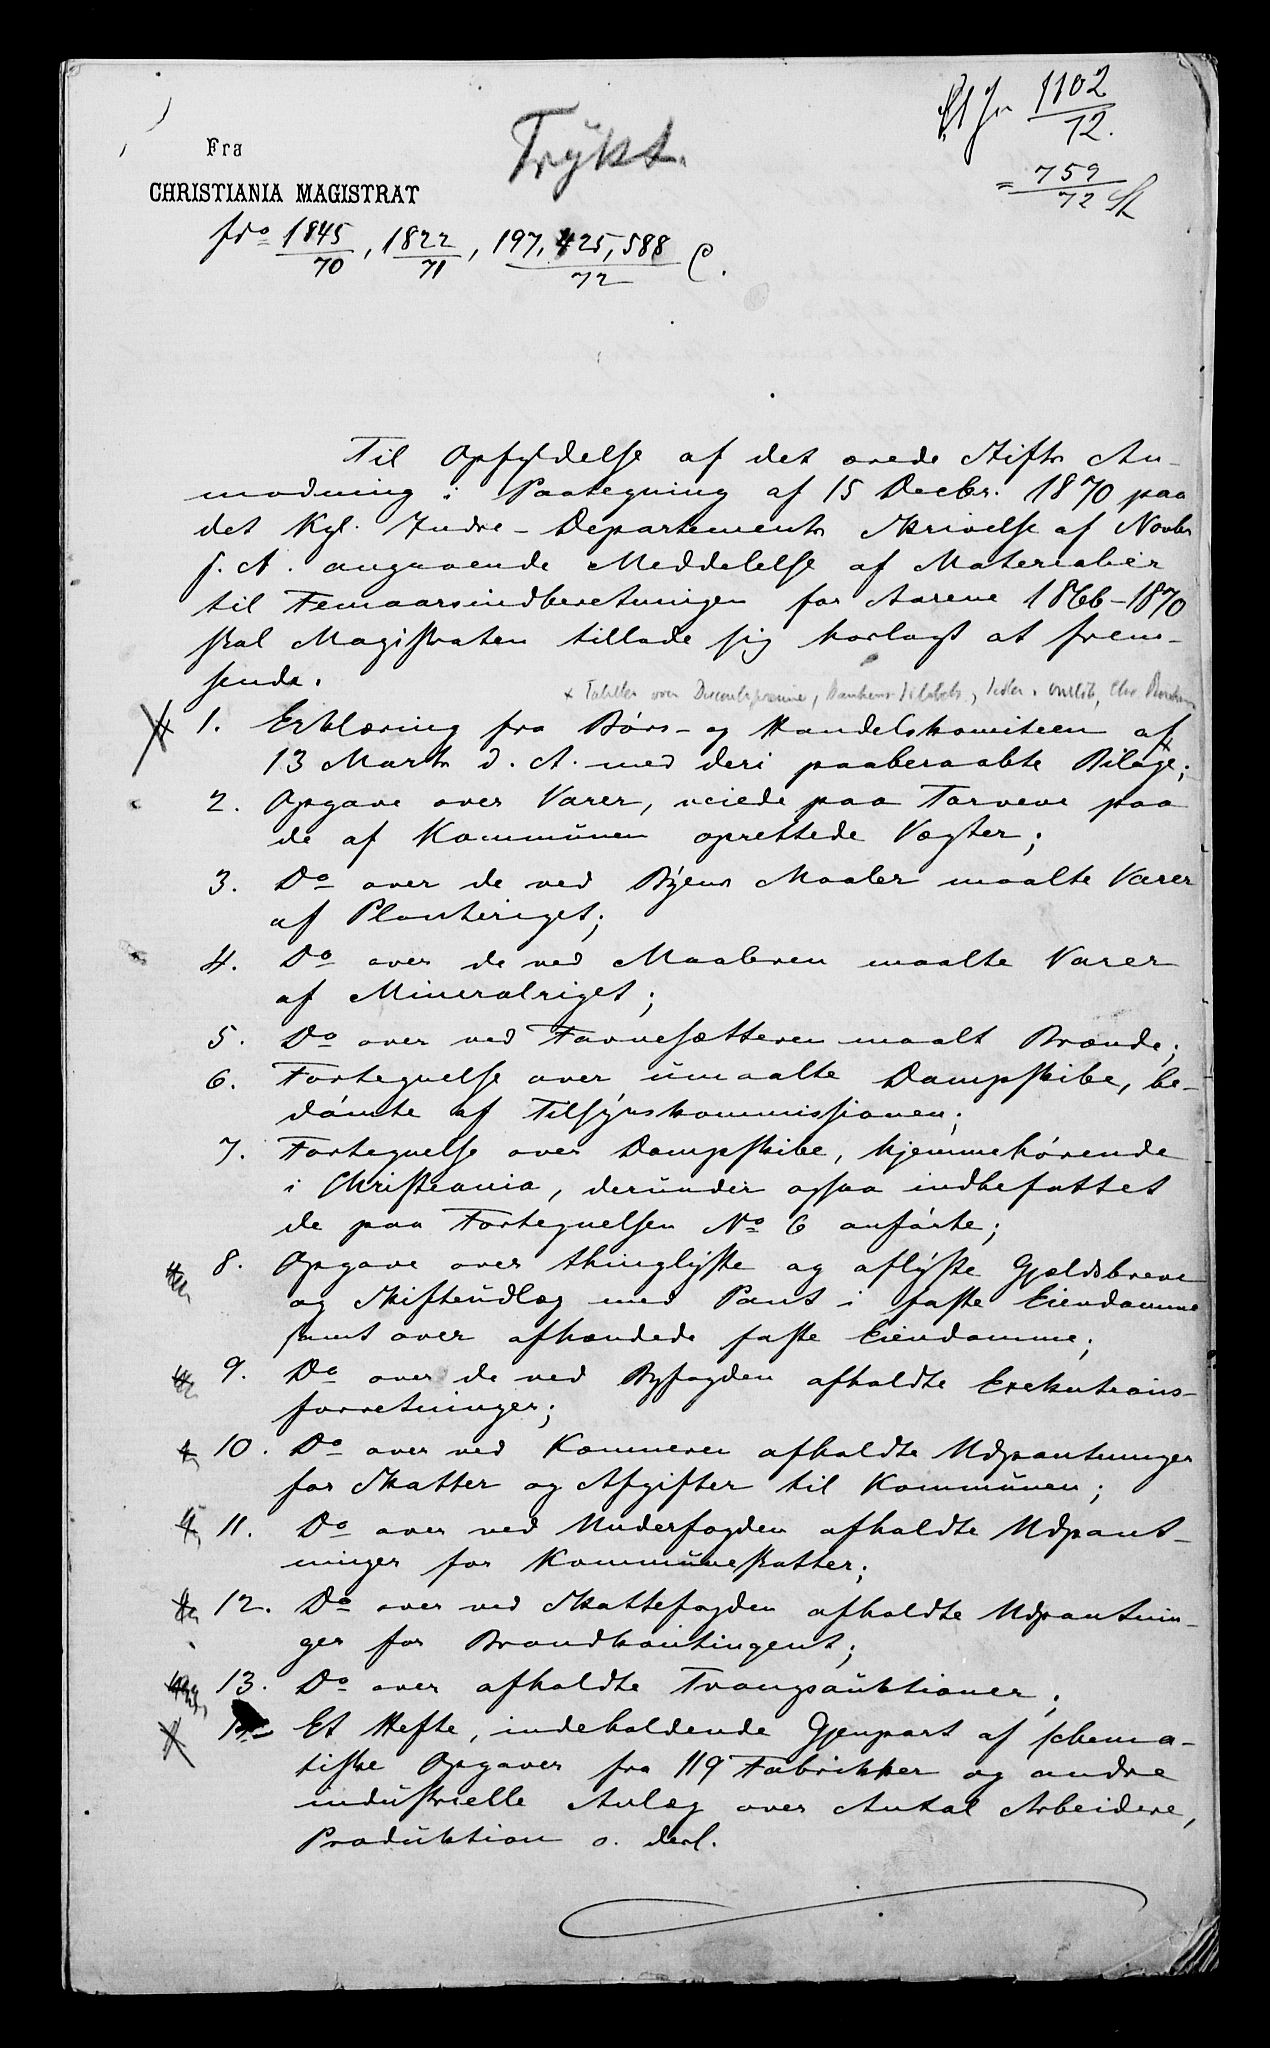 1102
Fra
Trykt.
12.
CHRISTIANIA MAGISTRAT
= 759
72
1845, 1822, 197, 425, 588 C.
70 71 72
Til Opfyldelse af det ærede Stifts An-
modning i Paategning af 15 Decbr. 1870 paa
det Kgl. Indre-Departements Skrivelse af Novbr
s. A. angaaende Meddelelse af Materialier
til Femaarsindberetningen for Aarene 1866-1870
skal Magistraten tillade sig herlagt at frem-
sende.
x Tabeller over
1. Erklæring fra Børs- og Handelskomiteen af
13 Marts d. A. med deri paaberaabte Bilage;
2. Opgave over Varer, veiede paa Torvene paa
de af Kommunen oprettede Vægter;
3. Do over de ved Byens Maaler maalte Varer
af Planteriget;
4. Do over de ved Maaleren maalte Varer
af Mineralriget;
5. Do over ved Favnesætteren maalt Brænde;
6. Fortegnelse over umaalte Dampskibe, be-
dömte af Tilsynskommissionen;
7. Fortegnelse over Dampskibe, hjemmehörende
i Christiania, derunder ogsaa indbefattet
de paa Fortegnelsen No 6 anförte;
8. Opgave over thinglyste og aflyste Gjældsbreve
og Skifteudlæg med Pant i faste Eiendomme
samt over afhændede faste Eiendomme;
9. Do over de ved Byfogden afholdte Exekutions-
forretninger;
10. Do over ved Kæmneren afholdte Udpantninger
for Skatter og Afgifter til Kommunen;
11. Do over ved Underfogden afholdte Udpant-
ninger for Kommuneskatter;
12. Do over ved Skattefogden afholdte Udpantnin-
ger for Brandkontingent;
13. Do over afholdte Tvangsauktioner;
Et Hefte, indeholdende Gjenpart af schema-
tiske Opgaver fra 119 Fabrikker og andre
industrielle Anlæg over Antal Arbeidere,
Produktion o. desl.